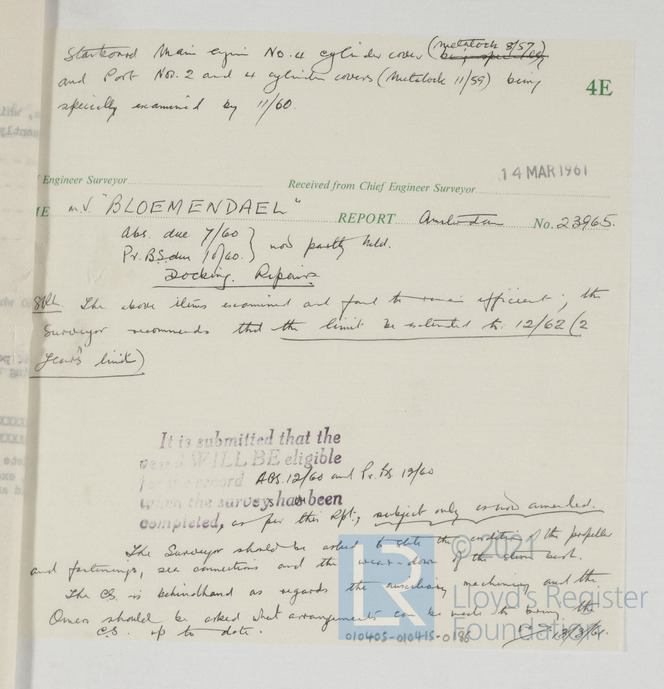 Starboard Main Engine No. 4 cylinder cover (metalock 8/57)
and Port Nos. 2 and 4 cylinder covers (Metalock 11/59) being
specially examined by 11/60.
4E
Engineer Surveyor
Received from Chief Engineer Surveyor
14 MAR 1961
ME m.v. "BLOEMENDAEL" REPORT Amsterdam No. 23965.
Abs. due 7/60 } now partly held.
Pr. B.S. due 10/60. }
Docking. Repairs.
SRL. The above items examined and found to remain efficient; the
Surveyor recommends that the limit be extended to 12/62 (2
Years limit)
It is submitted that the
vessel WILL BE eligible
for the record ABS. 12/60 and Pr. BS 12/60
when the survey has been
completed, as per this Rpt., subject only as now amended.
The Surveyor should be asked to state the condition of the propeller
and fastenings, sea connections and the wear-down of the stern bush.
The CS is behindhand as regards the auxiliary machinery and the
Owners should be asked what arrangements can be made to bring the
C.S. up to date.
010405-010415-0196
© 2021
Lloyd's Register
Foundation
LR